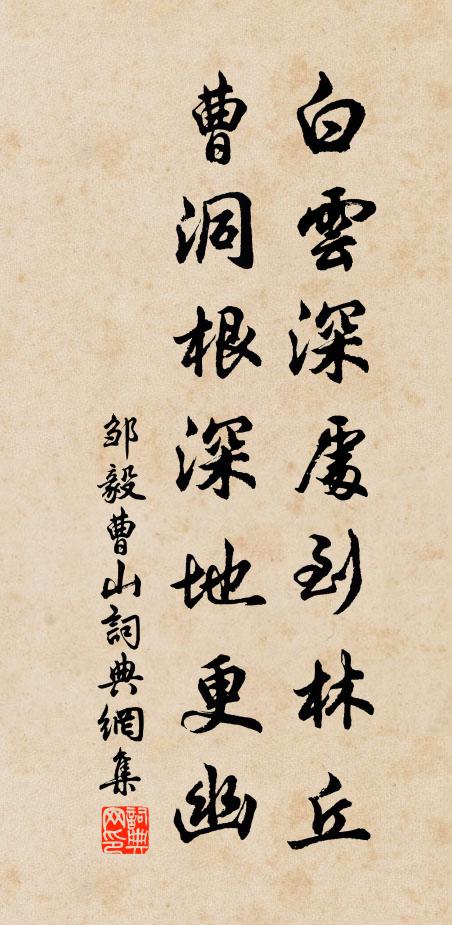 白雲深處到林丘
曹洞根深地更幽
鄒毅曹山詞典網集
詞典網印